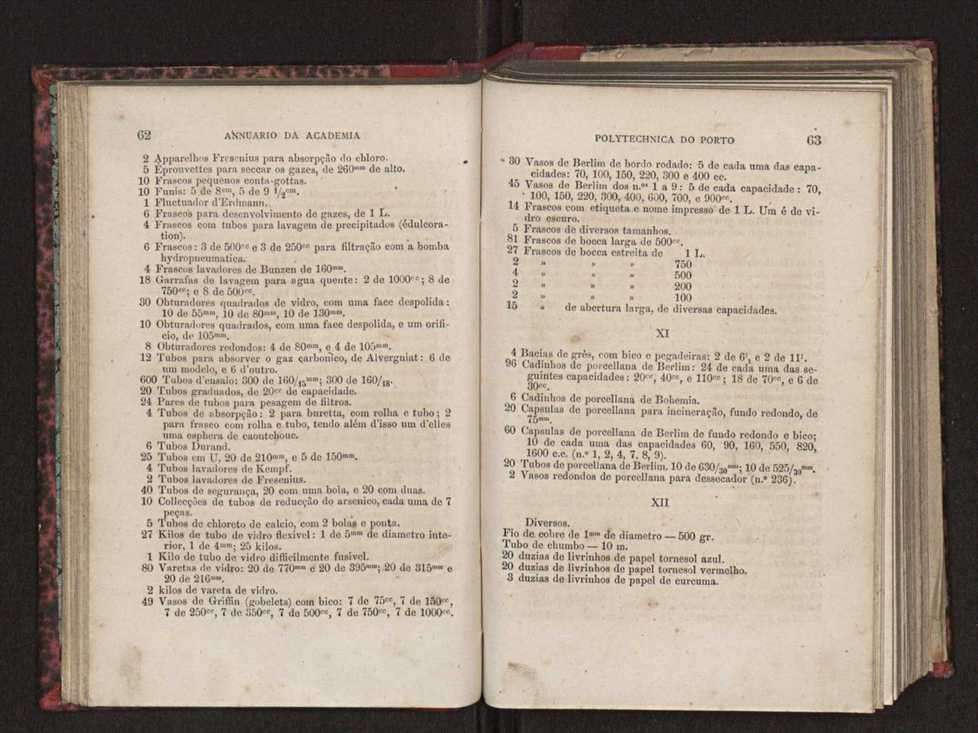 62 ANNUARIO DA ACADEMIA
2 Apparelhos Fresenius para absorpção do chloro.
5 Eprouvettes para seccar os gazes, de 260mm de alto.
10 Frascos pequenos conta-gottas.
10 Funis: 5 de 8cm, 5 de 9 1/2cm.
1 Fluctuador d'Erdmann.
6 Frascos para desenvolvimento de gazes, de 1 L.
4 Frascos com tubos para lavagem de precipitados (édulcora-
tion).
6 Frascos: 3 de 500cc e 3 de 250cc para filtração com a bomba
hydropneumatica.
4 Frascos lavadores de Bunzen de 160mm.
18 Garrafas de lavagem para agua quente: 2 de 1000cc; 8 de
750cc; e 8 de 500cc.
30 Obturadores quadrados de vidro, com uma face despolida:
10 de 55mm, 10 de 80mm, 10 de 130mm.
10 Obturadores quadrados, com uma face despolida, e um orifi-
cio, de 105mm.
8 Obturadores redondos: 4 de 80mm, e 4 de 105mm.
12 Tubos para absorver o gaz carbonico, de Alvergniat: 6 de
um modelo, e 6 d'outro.
600 Tubos d'ensaio: 300 de 160/15mm; 300 de 160/18.
20 Tubos graduados, de 20cc de capacidade.
24 Pares de tubos para pesagem de filtros.
4 Tubos de absorpção: 2 para buretta, com rolha e tubo; 2
para frasco com rolha e tubo, tendo além d'isso um d'elles
uma esphera de caoutchouc.
6 Tubos Durand.
25 Tubos em U. 20 de 210mm, e 5 de 150mm.
4 Tubos lavadores de Kempf.
2 Tubos lavadores de Fresenius.
40 Tubos de segurança, 20 com uma bola, e 20 com duas.
10 Collecções de tubos de reducção do arsenico, cada uma de 7
peças.
5 Tubos de chloreto de calcio, com 2 bolas e ponta.
27 Kilos de tubo de vidro flexivel: 1 de 5mm de diametro inte-
rior, 1 de 4mm; 25 kilos.
1 Kilo de tubo de vidro difficilmente fusivel.
80 Varetas de vidro: 20 de 770mm e 20 de 395mm; 20 de 315mm e
20 de 216mm.
2 kilos de vareta de vidro.
49 Vasos de Griffin (gobelets) com bico: 7 de 75cc, 7 de 150cc,
7 de 250cc, 7 de 350cc, 7 de 500cc, 7 de 750cc, 7 de 1000cc.
POLYTECHNICA DO PORTO 63
30 Vasos de Berlim de bordo rodado: 5 de cada uma das capa-
cidades: 70, 100, 150, 220, 300 e 400 cc.
45 Vasos de Berlim dos n.os 1 a 9: 5 de cada capacidade: 70,
100, 150, 220, 300, 400, 600, 700, e 900cc.
14 Frascos com etiqueta e nome impresso de 1 L. Um é de vi-
dro escuro.
5 Frascos de diversos tamanhos.
81 Frascos de bocca larga de 500cc.
27 Frascos de bocca estreita de 1 L.
2 » » » 750
4 » » » 500
2 » » » 200
2 » » » 100
15 » de abertura larga, de diversas capacidades.
XI
4 Bacias de grés, com bico e pegadeiras: 2 de 6l, e 2 de 11l.
96 Cadinhos de porcellana de Berlim: 24 de cada uma das se-
guintes capacidades: 20cc, 40cc, e 110cc; 18 de 70cc, e 6 de
30cc.
6 Cadinhos de porcellana de Bohemia.
20 Capsulas de porcellana para incineração, fundo redondo, de
75mm.
60 Capsulas de porcellana de Berlim de fundo redondo e bico;
10 de cada uma das capacidades 60, 90, 160, 550, 820,
1600 c.c. (n.os 1, 2, 4, 7, 8, 9).
20 Tubos de porcellana de Berlim, 10 de 630/30mm; 10 de 525/20mm.
2 Vasos redondos de porcellana para dessecador (n.º 236).
XII
Diversos.
Fio de cobre de 1mm de diametro — 500 gr.
Tubo de chumbo — 10 m.
20 duzias de livrinhos de papel tornesol azul.
20 duzias de livrinhos de papel tornesol vermelho.
3 duzias de livrinhos de papel de curcuma.